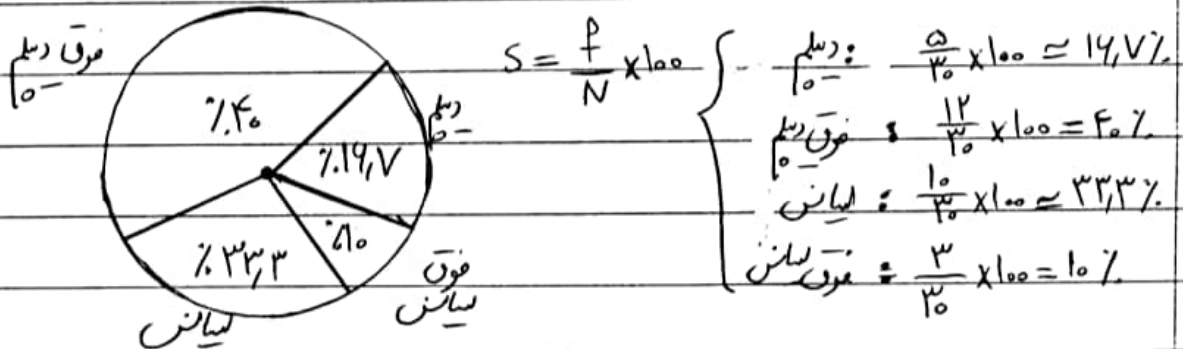 فوق دیپلم
٪۴۰
دیپلم
٪۱۶٫۷
٪۱۰
فوق
لیسانس
٪۳۳٫۳
لیسانس
S = f/N ×۱۰۰
دیپلم: ۵/۳۰ ×۱۰۰ ≃ ۱۶٫۷٪
فوق دیپلم: ۱۲/۳۰ ×۱۰۰ = ۴۰٪
لیسانس: ۱۰/۳۰ ×۱۰۰ ≃ ۳۳٫۳٪
فوق لیسانس: ۳/۳۰ ×۱۰۰ = ۱۰٪